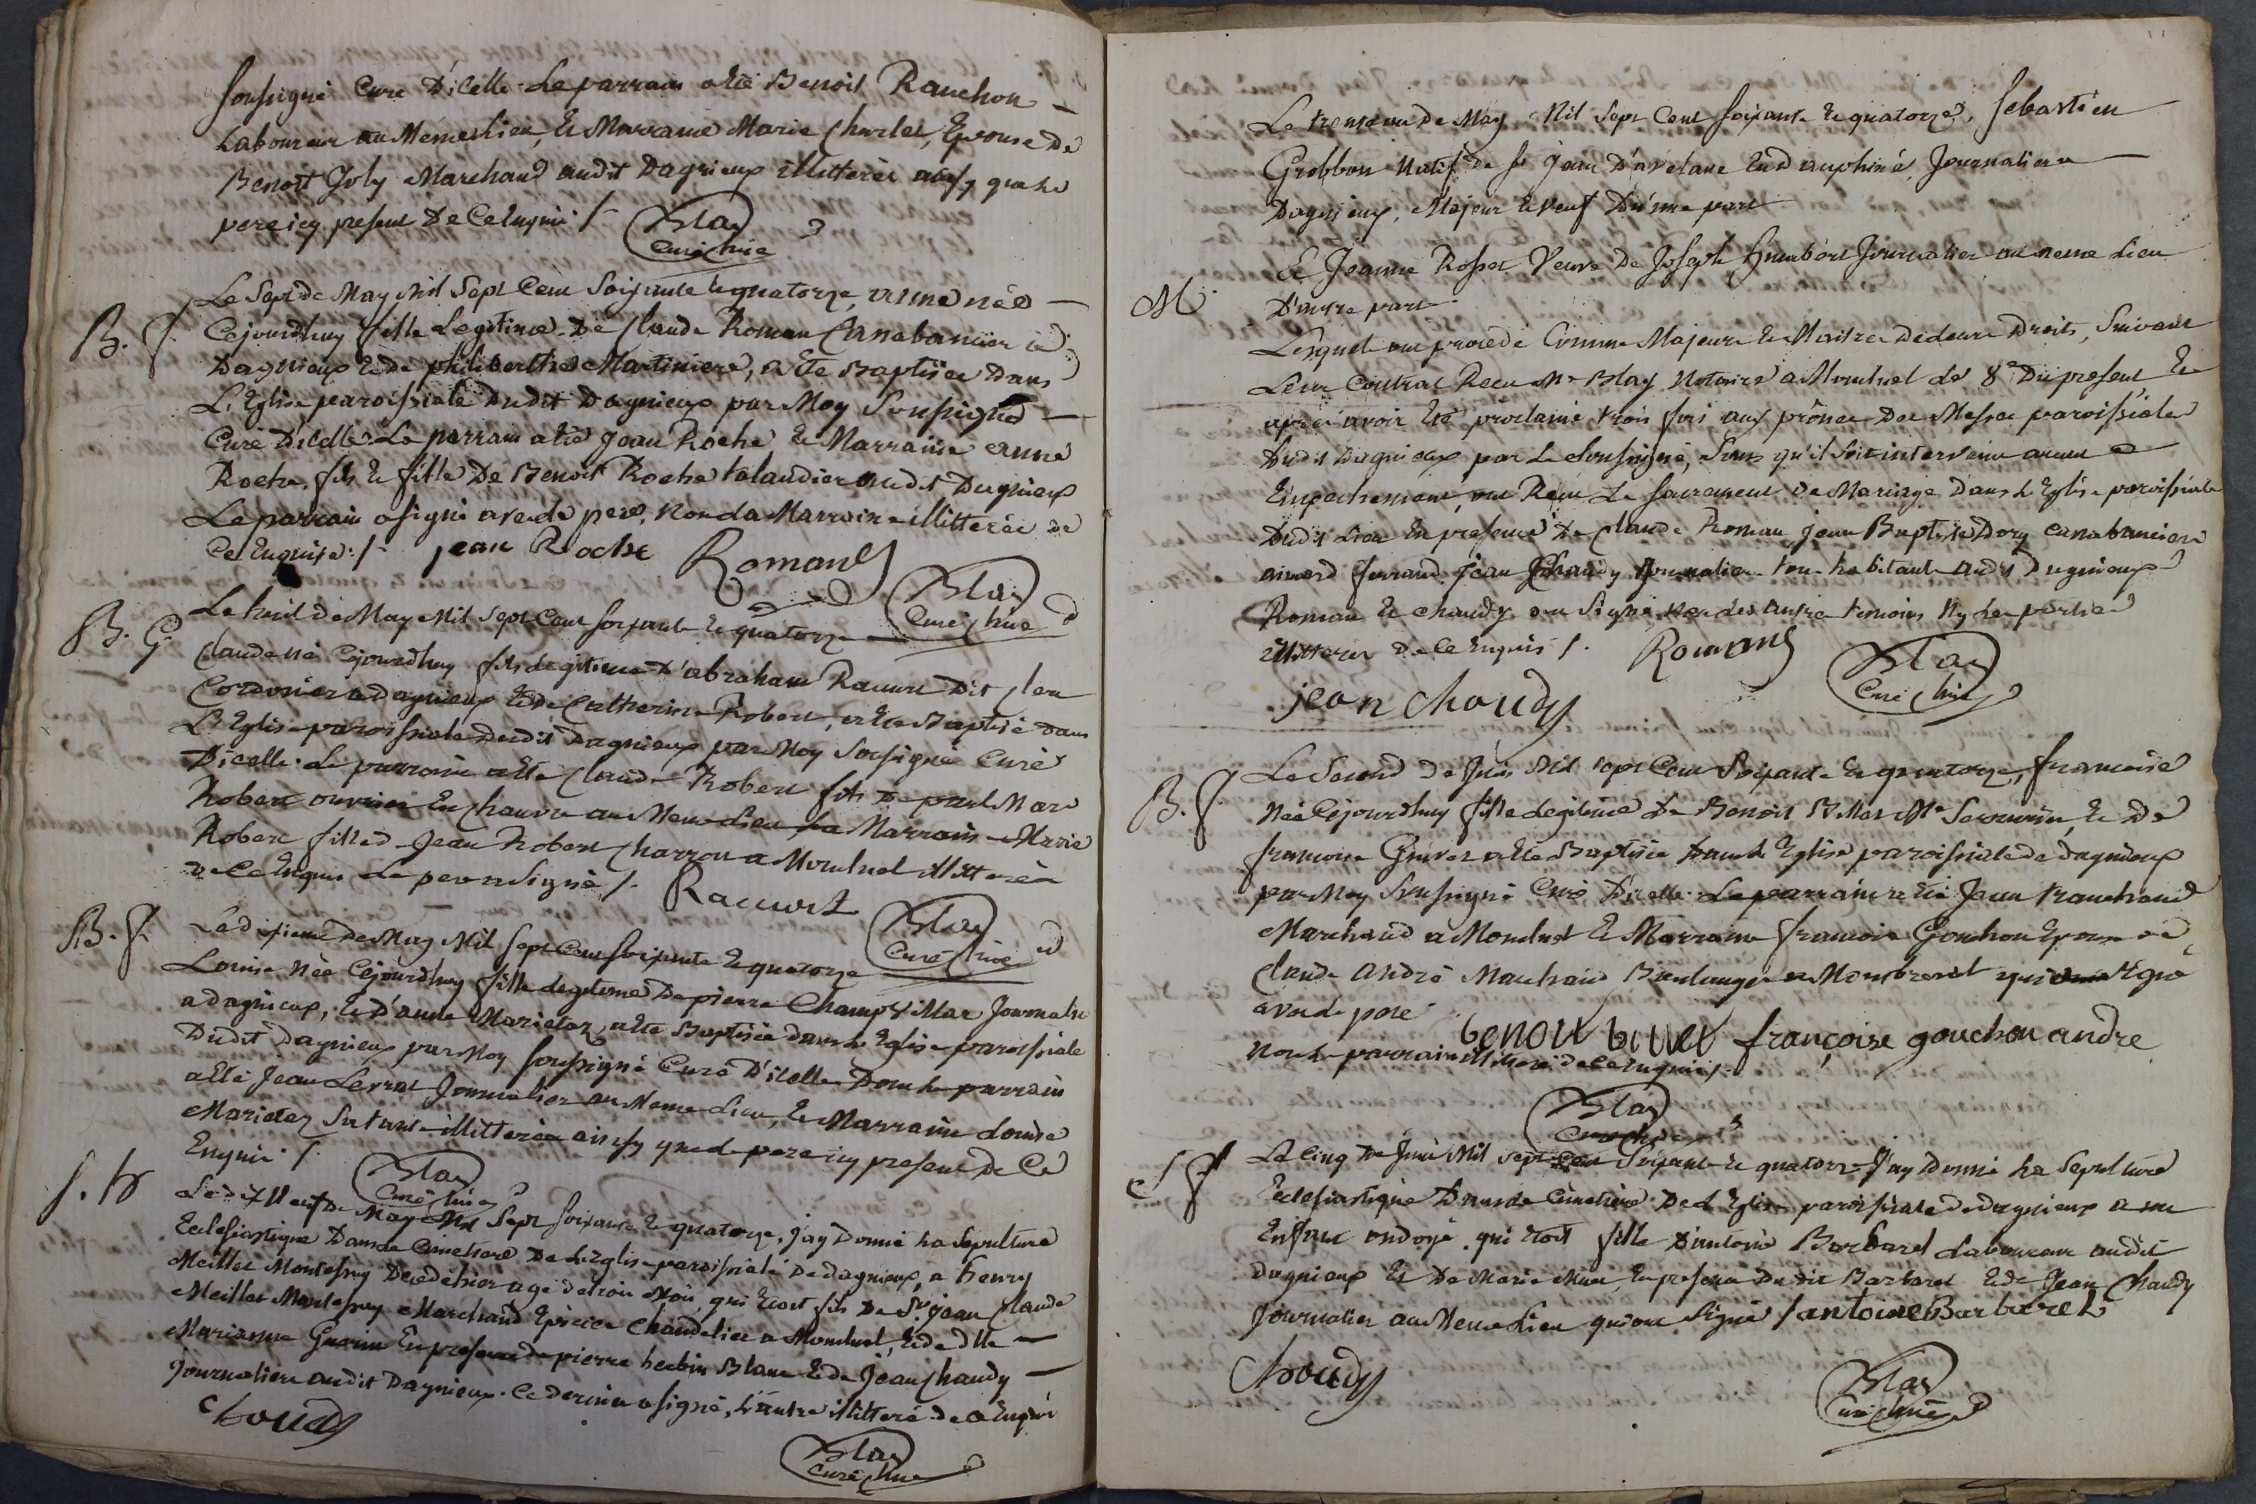 soussigné Curé D'icelle. Le parrain a été Benoit Ranchon
Laboureur au Meme Lieu, Et Marraine Marie Charlet, Epouse De
Benoit Joly Marchand audit Dagnieux illitterés ainsy que le
pere icy present De Ce Enquis /.
Blay
Curé
B. f.
Le Sept de May Mil Sept Cent Soixante Et quatorze, anne née
Cejourdhuy fille Legitime De Claude Roman Canabancier a
Dagnieux Et de philiberthe Martiniere, a Eté Baptisée Dans
L'Eglise paroissiale Dudit Dagnieux par Moy Soussigné
Curé D'icelle. Le parrain a été Jean Roche Et Marraine anne
Roche, fils Et fille De Benoit Roche talandier audit Dagnieux
Le parrain a signé avec le pere, Non la Marraine illitterée de
Ce Enquise /. jean Roche Romans
Blay
Curé
B. G
Le huit de May Mil Sept Cent soixante Et quatorze
Claude né Cejourdhuy fils legitime D'abraham Racurt Dit
Cordonier a dagnieux Et de Catherine Robert, a Eté Baptisé dans
L'Eglise paroissiale Dudit Dagnieux par Moy Sousigné Curé
D'icelle. Le parrain a été Claude Robert fils De paul Marc
Robert ouvrier En Chanvre au Meme Lieu La Marraine Marie
Robert fille d Jean Robert Charron a Montluel illitterée
de Ce Enquis Le pere a Signé /. Racurt
Blay
Curé
B. f.
Le dixieme de May Mil Sept Cent soixante Et quatorze
Louise Née Cejourdhuy fille Legitime De pierre Champt Mar Journalie
a dagnieux, Et D'anne Marietaz, a Eté Baptisée dans L'Eglise paroissiale
Dudit Dagnieux par Moy soussigné Curé D'icelle Dont Le parrain
a Eté Jean Journalier au Meme Lieu, Et Marraine Louise
Marietaz Sa tante illitterée ainsy que le pere icy present De Ce
Enquis /.
Blay
Curé
S. G
Le dix Neuf De May Mil Sept Soixante Et quatorze, J'ay Donné La Sepulture
Ecclesiastique Dans Le Cimetiere De L'Eglise paroissiale De dagnieux, a henry
Meillet Montessuy Decedé hier agé de trois Mois, qui Etoit fils De Sr. Jean Claude
Meillet Montessuy Marchand Epicier Chandelier a Montluel, Et de dlle
Marianne Guerin En presence de pierre Blanc Et de Jean Chaudy
Journaliers audit Dagnieux. Ce dernier a signé, L'autre illitteré De Ce Enquis
Choudy
Blay
Curé
M.
Le trente un De May Mil Sept Cent Soixante Et quatorze, Sebastien
Grobbon Natif De St Jean D'avelane En Dauphiné, Journalier a
Dagnieux, Majeur Et veuf D'une part
Et Jeanne Rosset Veuve De Joseph Humbert Journalier au meme Lieu
D'autre part
Lesquels ont procedé Comme Majeurs Et Maitres de Leurs Droits, Suivant
Leur Contrat Recu Me Blay Notaire a Montluel Le 8e Du present, Et
après avoir Eté proclamé trois fois aux prônes Des Messes paroissiales
Dudit Dagnieux par Le Soussigné, Sans qu'il soit intervenu aucun
Empechement, ont Reçu Le Sacrement De Mariage Dans L'Eglise paroissiale
Dudit Lieu En presence De Claude Roman, Jean Baptiste Dory Canabanciers
aimard ferrand, Jean Chaudy Journaliers tous habitants audit Dagnieux
Roman Et Chaudy ont Signé Non Les autres temoins Ny Les parties
illitterés De Ce Enquis /. Romans
jean choudy
Blay
Curé
B. f.
Le Second De Juin Mil Sept Cent Soixante Et quatorze, francoise
Née Cejourdhuy fille Legitime De Benoit Billet Me Serrurier, Et De
francoise a Eté Baptisée Dans L'Eglise paroissiale de Dagnieux
par Moy Soussigné Curé D'icelle. Le parrain a Eté Jean tranchand
Marchand a Montluel Et Marraine francoise Gouchon Epouse de
Claude André Marchand Boulanger a Montluel qui a signé
avec le pere
benoit billet françoise gouchon andre
Non Le parrain illitteré de Ce Enquis /.
Blay
Curé
S f
Le Cinq De Juin Mil Sept Cent Soixante Et quatorze J'ay Donné La Sepulture
Ecclesiastique Dans Le Cimetiere De L'Eglise paroissiale De dagnieux a un
Enfant ondoyé qui Etoit fille D'antoine Barbaret Laboureur audit
Dagnieux Et De Marie En presence Du dit Barbaret Et de Jean Chaudy
Journalier au Meme Lieu qui ont Signé / antoine Barbaret
Choudy
Blay
Curé